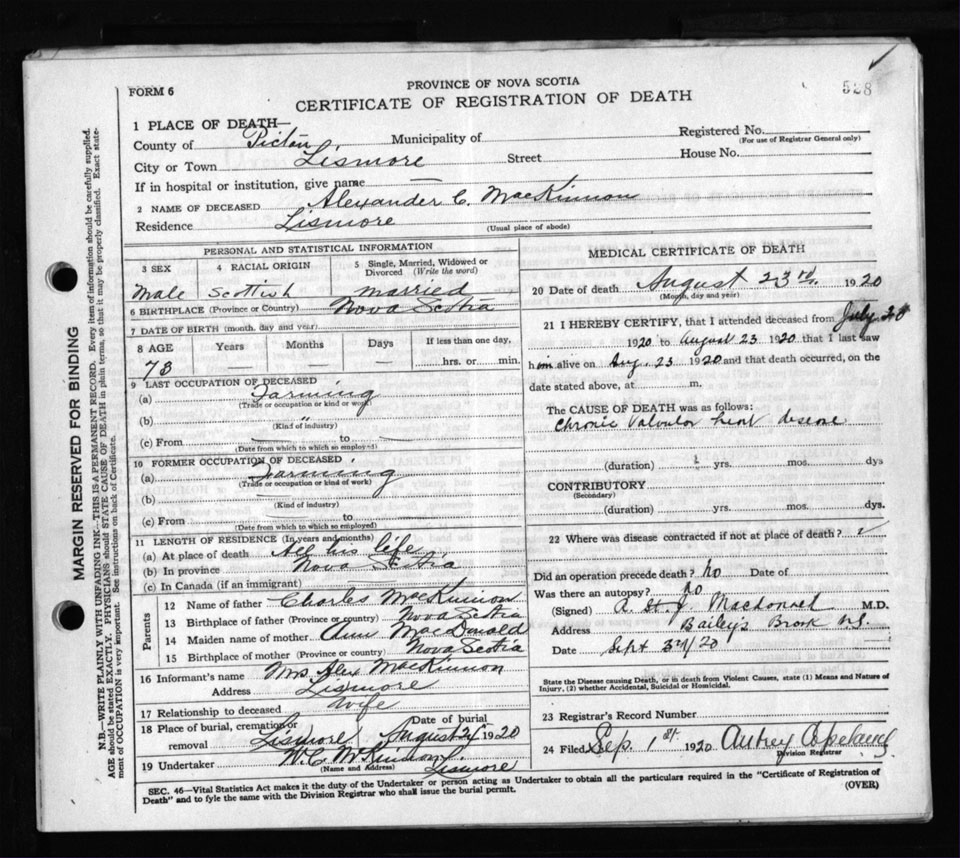 528
FORM 6
PROVINCE OF NOVA SCOTIA
CERTIFICATE OF REGISTRATION OF DEATH
1 PLACE OF DEATH—
County of Pictou Municipality of Registered No.
(For use of Registrar General only)
City or Town Lismore Street House No.
If in hospital or institution, give name —
2 NAME OF DECEASED Alexander C. MacKinnon
Residence Lismore (Usual place of abode)
PERSONAL AND STATISTICAL INFORMATION
3 SEX 4 RACIAL ORIGIN 5 Single, Married, Widowed or Divorced (Write the word)
Male Scottish married
6 BIRTHPLACE (Province or Country) Nova Scotia
7 DATE OF BIRTH (month, day and year)
8 AGE Years Months Days If less than one day,
73 — — — hrs. or min.
9 LAST OCCUPATION OF DECEASED
(a) Farming
(Trade or occupation or kind of work)
(b)
(Kind of industry)
(c) From — to —
(Date from which to which so employed)
10 FORMER OCCUPATION OF DECEASED
(a) Farming
(Trade or occupation or kind of work)
(b)
(Kind of industry)
(c) From — to —
(Date from which to which so employed)
11 LENGTH OF RESIDENCE (In years and months)
(a) At place of death All his life
(b) In province Nova Scotia
(c) In Canada (if an immigrant)
Parents
12 Name of father Charles MacKinnon
13 Birthplace of father (Province or country) Nova Scotia
14 Maiden name of mother Ann MacDonald
15 Birthplace of mother (Province or country) Nova Scotia
16 Informant's name Mrs Alex MacKinnon
Address Lismore
17 Relationship to deceased Wife
18 Place of burial, cremation, removal Lismore Date of burial August 1920
19 Undertaker W.C. McKinnon
(Name and Address) Lismore
MEDICAL CERTIFICATE OF DEATH
20 Date of death August 23rd, 1920
(Month, day and year)
21 I HEREBY CERTIFY, that I attended deceased from July 20
1920 to August 23 1920 that I last saw
him alive on Aug. 23 1920 and that death occurred, on the
date stated above, at m,
The CAUSE OF DEATH was as follows:
Chronic Valvular heart disease
(duration) yrs. mos. dys
CONTRIBUTORY
(Secondary)
(duration) yrs. mos. dys.
22 Where was disease contracted if not at place of death?
Did an operation precede death? No Date of
Was there an autopsy? No
(Signed) A. St. J. Macdonald M.D.
Address Bailey's Brook N.S.
Date Sept 3rd/20
State the Disease causing Death, or in death from Violent Causes, state (1) Means and Nature of
Injury, (2) whether Accidental, Suicidal or Homicidal.
23 Registrar's Record Number
24 Filed Sep. 1st. 1920
Division Registrar
SEC. 46—Vital Statistics Act makes it the duty of the Undertaker or person acting as Undertaker to obtain all the particulars required in the "Certificate of Registration of
Death" and to fyle the same with the Division Registrar who shall issue the burial permit.
(OVER)
MARGIN RESERVED FOR BINDING
N.B.—WRITE PLAINLY WITH UNFADING INK—THIS IS A PERMANENT RECORD. Every item of information should be carefully supplied.
AGE should be stated EXACTLY. PHYSICIANS should STATE CAUSE OF DEATH in plain terms, so that it may be properly classified. Exact state-
ment of OCCUPATION is very important. See instructions on back of Certificate.